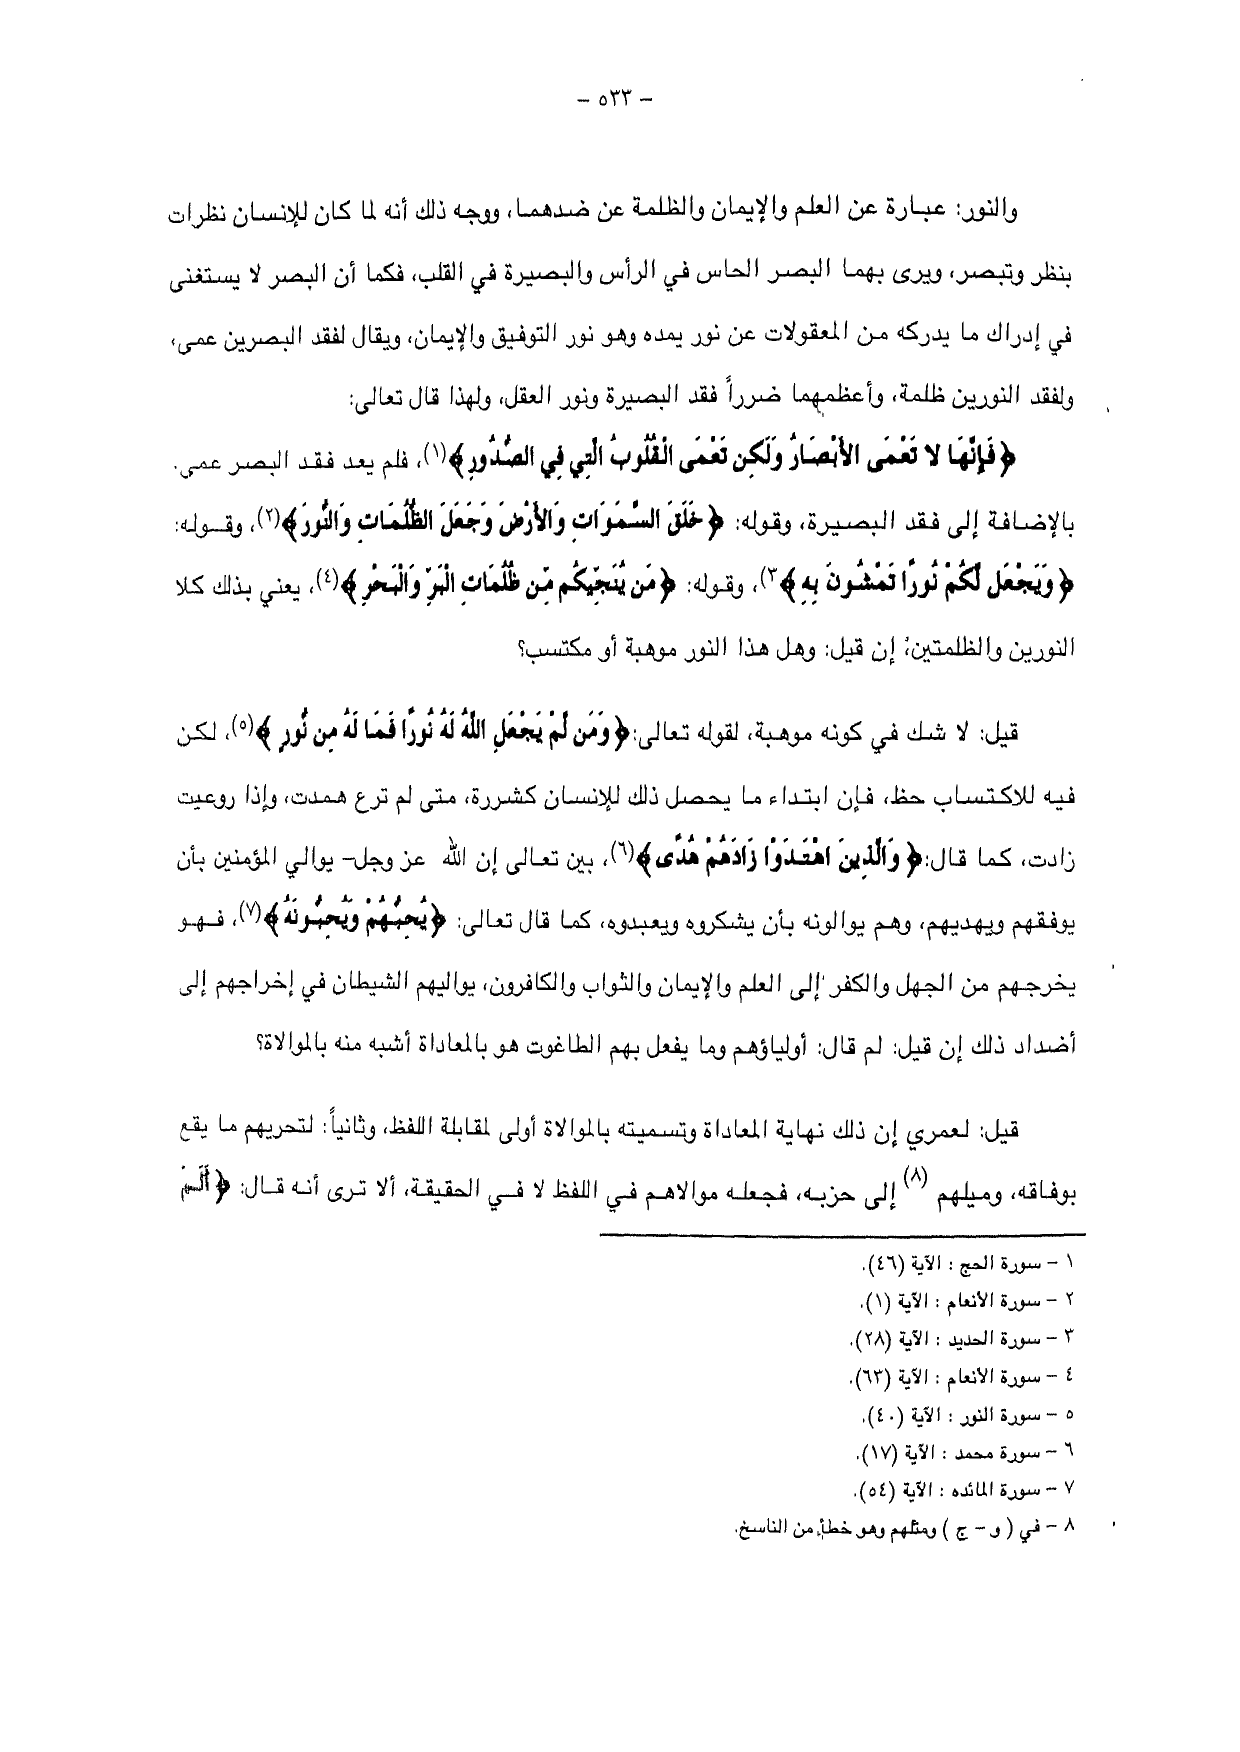 - ٥٣٣ -
والنور: عبارة عن العلم والإيمان والظلمة عن ضدهما، ووجه ذلك أنه لما كان للإنسان نظرات
ينظر وتبصر، ويرى بهما البصر الحاس في الرأس والبصيرة في القلب، فكما أن البصر لا يستغنى
في إدراك ما يدركه من المعقولات عن نور يمده وهو نور التوفيق والإيمان، ويقال لفقد البصرين عمى،
ولفقد النورين ظلمة، وأعظمهما ضرراً فقد البصيرة ونور العقل، ولهذا قال تعالى:
﴿فَإِنَّهَا لا تَعْمَى الأَبْصَارُ وَلَكِن تَعْمَى الْقُلُوبُ الَّتِي فِي الصُّدُورِ﴾(١)، فلم يعد فقد البصر عمي.
بالإضافة إلى فقد البصيرة، وقوله: ﴿خَلَقَ السَّمَوَاتِ وَالأَرْضَ وَجَعَلَ الظُّلُمَاتِ وَالنُّورَ﴾(٢)، وقوله:
﴿وَيَجْعَل لَّكُمْ نُورًا تَمْشُونَ بِهِ﴾(٣)، وقوله: ﴿مَن يُنَجِّيكُم مِّن ظُلُمَاتِ الْبَرِّ وَالْبَحْرِ﴾(٤)، يعني بذلك كلا
النورين والظلمتين؛ إن قيل: وهل هذا النور موهبة أو مكتسب؟
قيل: لا شك في كونه موهبة، لقوله تعالى:﴿وَمَن لَّمْ يَجْعَلِ اللَّهُ لَهُ نُورًا فَمَا لَهُ مِن نُّورٍ﴾(٥)، لكن
فيه للاكتساب حظ، فإن ابتداء ما يحصل ذلك للإنسان كشررة، متى لم ترع همدت، وإذا روعيت
زادت، كما قال:﴿وَالَّذِينَ اهْتَدَوْا زَادَهُمْ هُدًى﴾(٦)، بين تعالى إن الله عز وجل- يوالي المؤمنين بأن
يوفقهم ويهديهم، وهم يوالونه بأن يشكروه ويعبدوه، كما قال تعالى: ﴿يُحِبُّهُمْ وَيُحِبُّونَهُ﴾(٧)، فهو
يخرجهم من الجهل والكفر إلى العلم والإيمان والثواب والكافرون، يواليهم الشيطان في إخراجهم إلى
أضداد ذلك إن قيل: لم قال: أولياؤهم وما يفعل بهم الطاغوت هو بالمعاداة أشبه منه بالموالاة؟
قيل: لعمري إن ذلك نهاية المعاداة وتسميته بالموالاة أولى لمقابلة اللفظ، وثانياً: لتحريهم ما يقع
بوفاقه، وميلهم (٨) إلى حزبه، فجعله موالاهم في اللفظ لا في الحقيقة، ألا ترى أنه قال: ﴿أَلَمْ
١ - سورة الحج : الآية (٤٦).
٢ - سورة الأنعام : الآية (١).
٣ - سورة الحديد : الآية (٢٨).
٤ - سورة الأنعام : الآية (٦٣).
٥ - سورة النور : الآية (٤٠).
٦ - سورة محمد : الآية (١٧).
٧ - سورة المائده : الآية (٥٤).
٨ - في ( و - ج ) ومثلهم وهو خطأ من الناسخ.